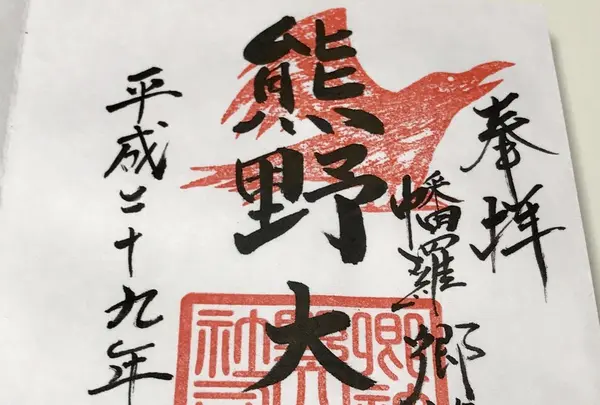 奉拝
幡羅郷
熊野大
平成二十九年